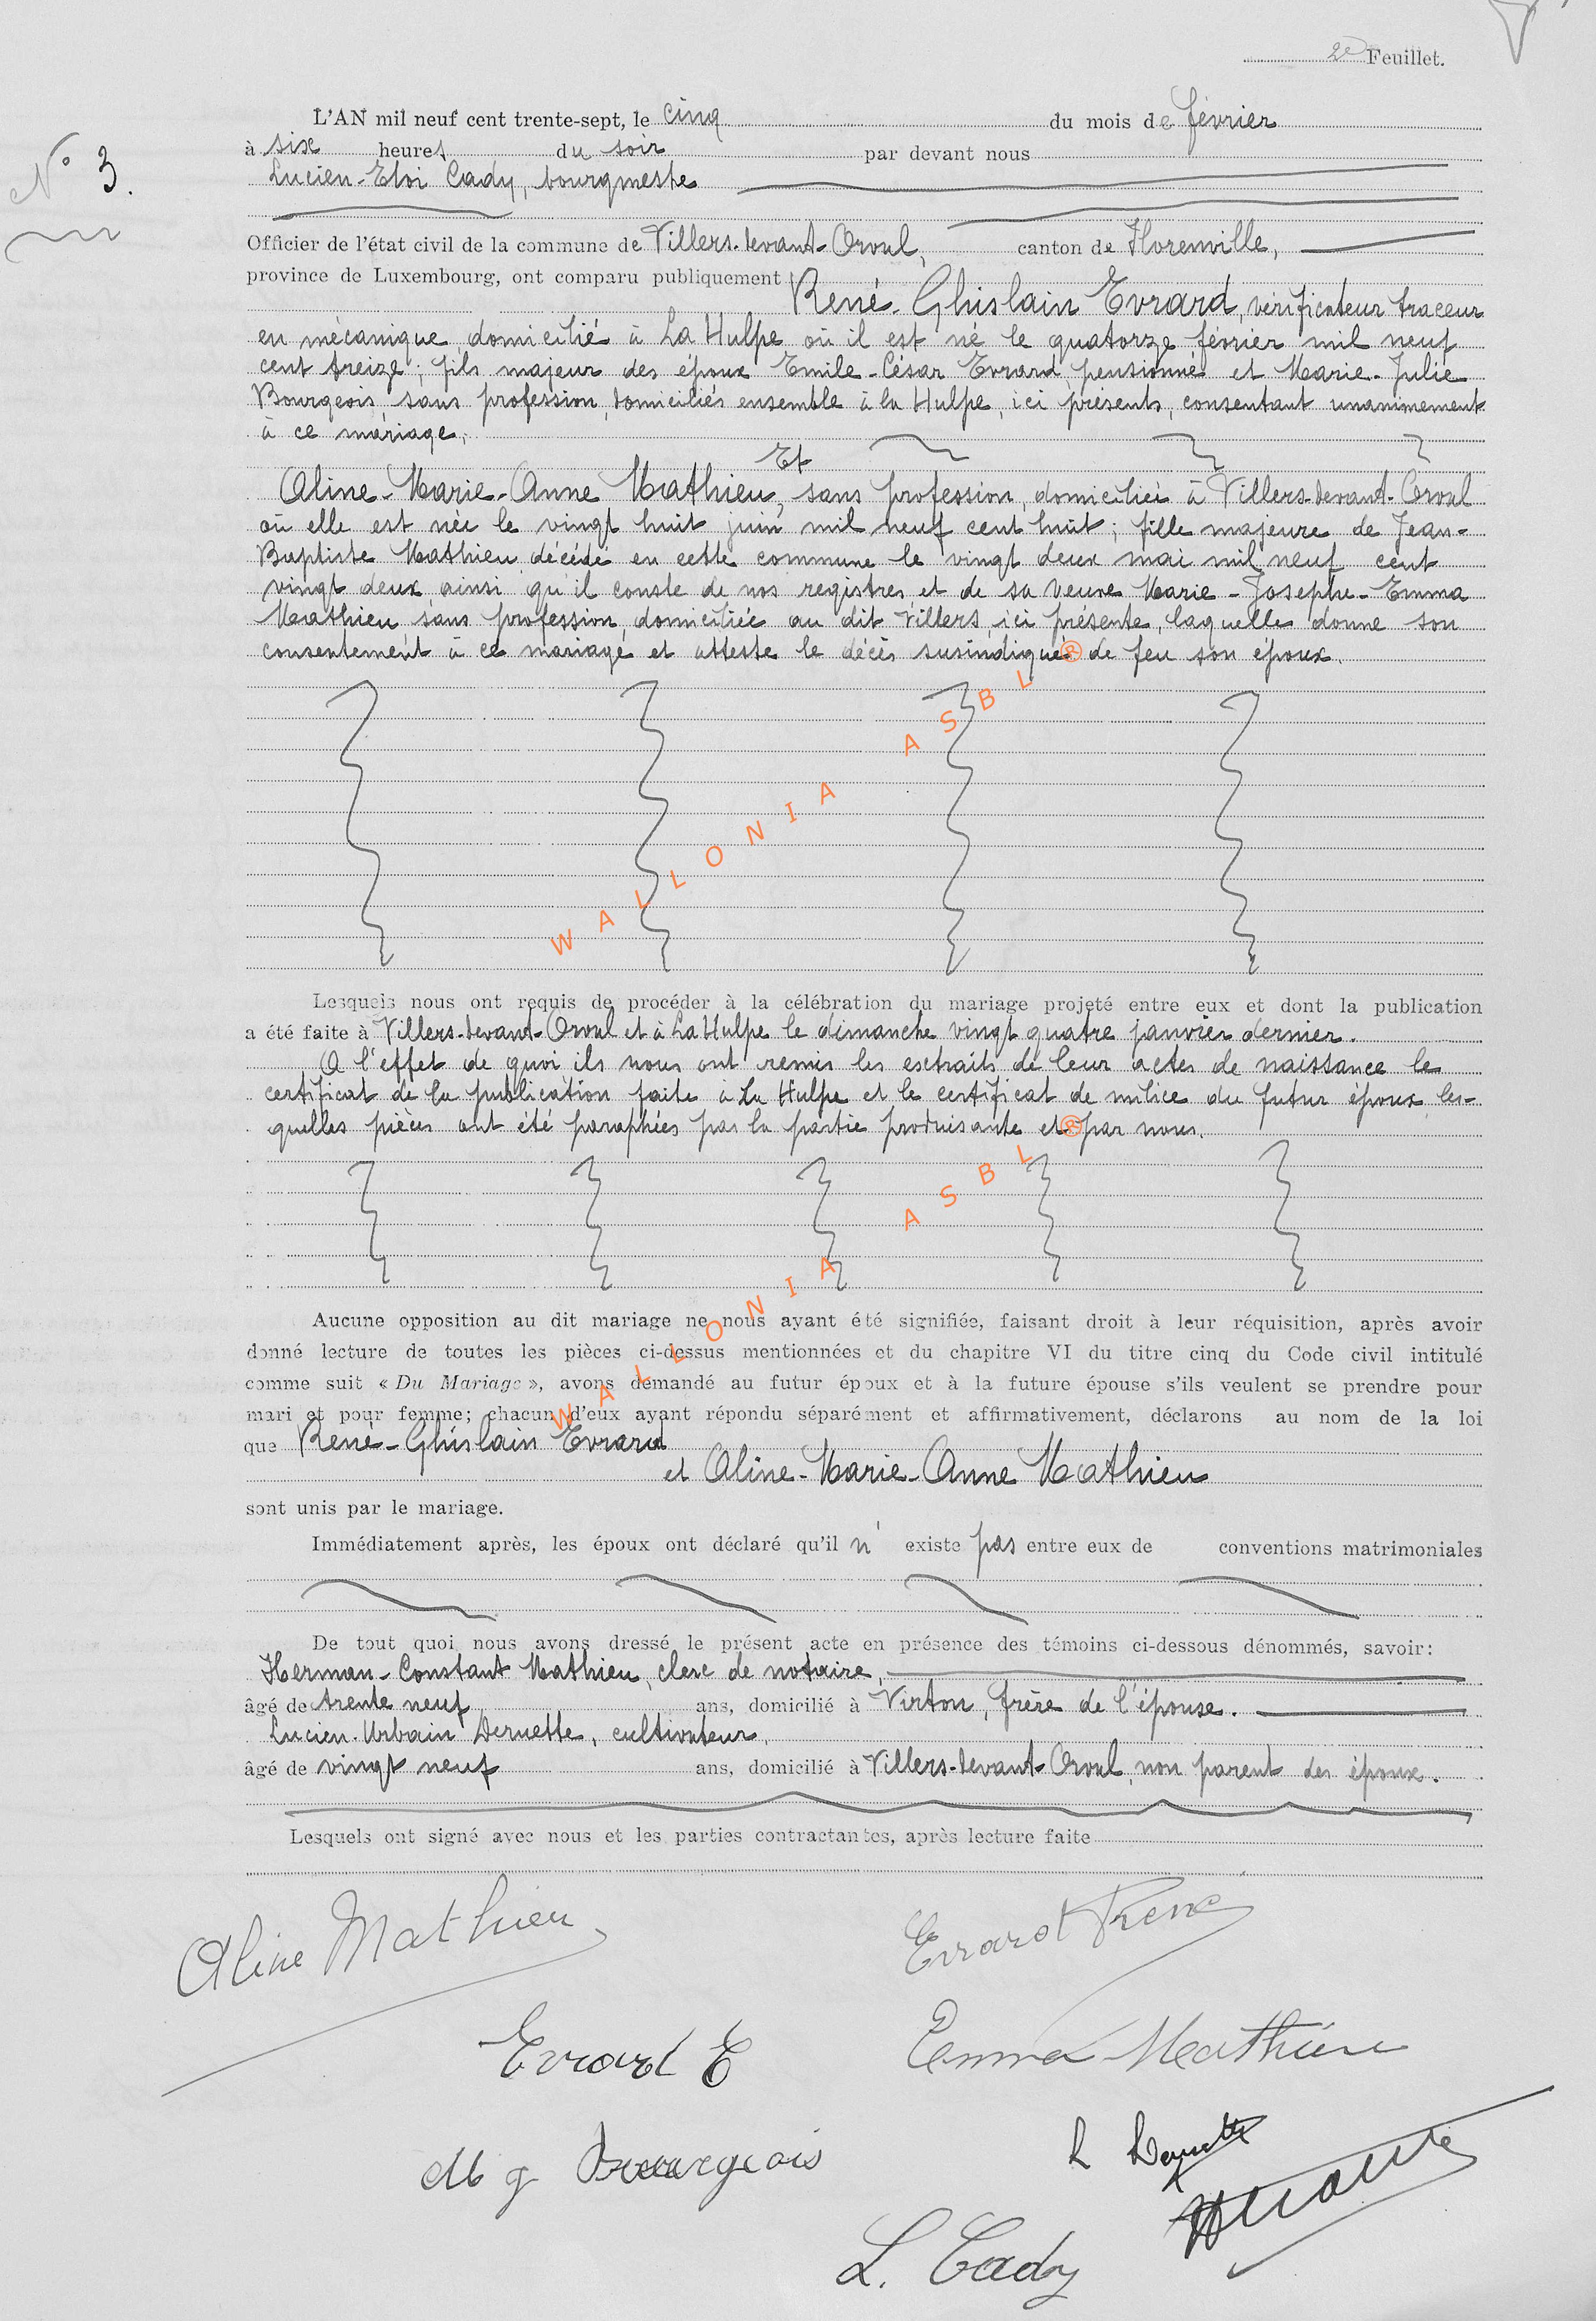 2e Feuillet.
N° 3.
L'AN mil neuf cent trente-sept, le cinq du mois de février
à six heures du soir par devant nous
Lucien-Eloi Cady, bourgmestre
Officier de l'état civil de la commune de Villers-devant-Orval, canton de Florenville,
province de Luxembourg, ont comparu publiquement René-Ghislain Evrard, vérificateur traceur
en mécanique, domicilié à La Hulpe où il est né le quatorze février mil neuf
cent treize; fils majeur des époux Emile-César Evrard, pensionné et Marie-Julie
Bourgeois, sans profession, domiciliés ensemble à la Hulpe, ici présents, consentant unanimement
à ce mariage;
Et
Aline-Marie-Anne Mathieu, sans profession, domiciliée à Villers-devant-Orval
où elle est née le vingt huit juin mil neuf cent huit; fille majeure de Jean-
Baptiste Mathieu décédé en cette commune le vingt deux mai mil neuf cent
vingt deux, ainsi qu'il conste de nos registres et de sa veuve Marie-Josephe-Emma
Mathieu sans profession, domiciliée au dit Villers, ici présente, laquelle donne son
consentement à ce mariage et atteste le décès susindiqué de feu son époux.
WALLONIA ASBL ®
Lesquels nous ont requis de procéder à la célébration du mariage projeté entre eux et dont la publication
a été faite à Villers-devant-Orval et à La Hulpe le dimanche vingt quatre janvier dernier.
A l'effet de quoi ils nous ont remis les extraits de leur actes de naissance le
certificat de la publication faite à La Hulpe et le certificat de milice du futur époux, les-
quelles pièces ont été paraphées par la partie produisante et par nous.
WALLONIA ASBL ®
Aucune opposition au dit mariage ne nous ayant été signifiée, faisant droit à leur réquisition, après avoir
donné lecture de toutes les pièces ci-dessus mentionnées et du chapitre VI du titre cinq du Code civil intitulé
comme suit « Du Mariage », avons demandé au futur époux et à la future épouse s'ils veulent se prendre pour
mari et pour femme; chacun d'eux ayant répondu séparément et affirmativement, déclarons au nom de la loi
que René-Ghislain Evrard
et Aline-Marie-Anne Mathieu
sont unis par le mariage.
Immédiatement après, les époux ont déclaré qu'il n' existe pas entre eux de conventions matrimoniales
De tout quoi nous avons dressé le présent acte en présence des témoins ci-dessous dénommés, savoir:
Herman-Constant Mathieu, clerc de notaire,
âgé de trente neuf ans, domicilié à Virton, frère de l'épouse.
Lucien-Urbain Dernette, cultivateur,
âgé de vingt neuf ans, domicilié à Villers-devant-Orval, non parent des époux.
Lesquels ont signé avec nous et les parties contractantes, après lecture faite
Aline Mathieu
Evrard René
Evrard E
Emma Mathieu
M J Bourgeois
L. Cady